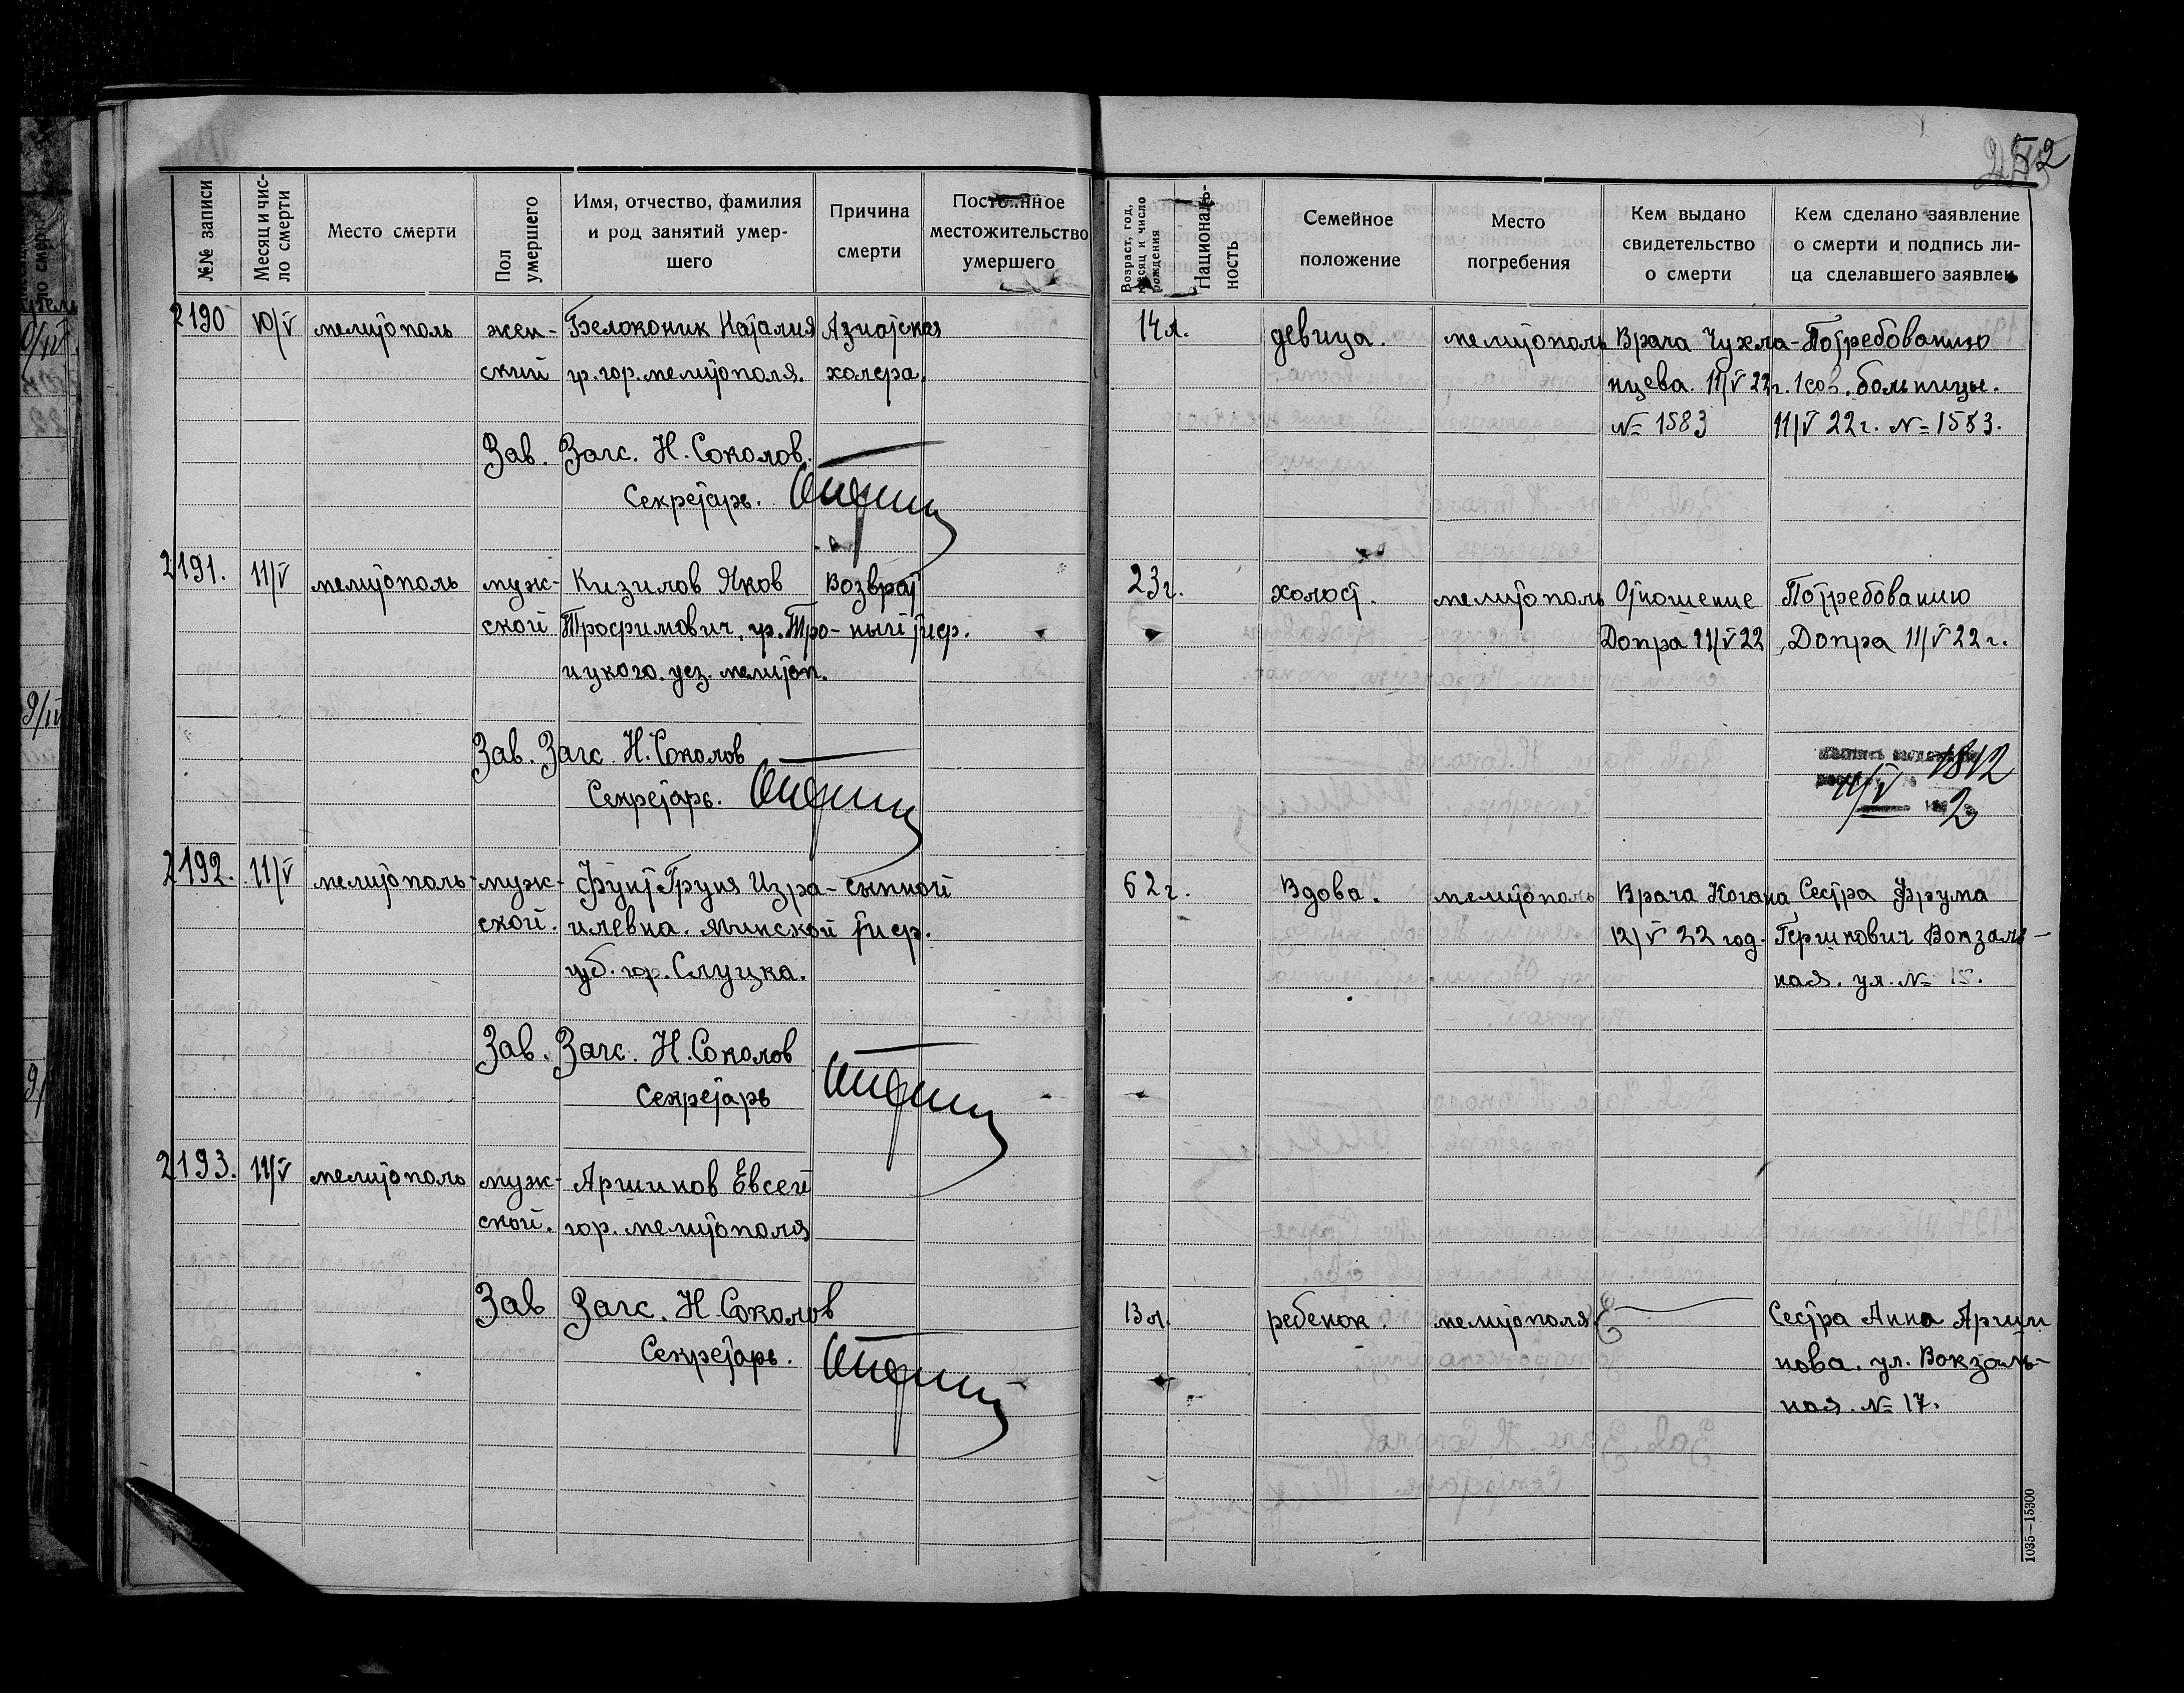 252
№№ записи
Месяц и чис-
ло смерти
Место смерти
Пол
умершего
Имя, отчество, фамилия
и род занятий умер-
шего
Причина
смерти
Постоянное
местожительство
умершего
Возраст, год,
месяц и число
рождения
Националь-
ность
Семейное
положение
Место
погребения
Кем выдано
свидетельство
о смерти
Кем сделано заявление
о смерти и подпись ли-
ца сделавшего заявлен.
2190 10/V мелитополь жен- Белоконик Наталия Азиатская 14 л. девица. мелитополь Врача Чухла- По требованию
ский гр. гор. мелитополя. холера. нцева. 11/V 22 г. 1 сов. больницы.
№ 1583 11/V 22 г. № 1583.
Зав. Загс. Н. Соколов.
Секретарь.
2191. 11/V мелитополь муж- Кизилов Яков Возврат 23 г. холост. мелитополь Отношение По требованию
ской Трофимович, гр. Тро- ный тиф. Допра 11/V 22 Допра 11/V 22 г.
ицкого. уез. мелитоп.
Зав. Загс Н. Соколов
Секретарь.
1812
11/V
2
2192. 11/V мелитополь муж- Фунт Груня Изра- сыпной 62 г. Вдова. мелитополь Врача Когана Сестра Фрума
ской. илевна. Минской тиф. 12/V 22 год. Гершкович Вокзаль-
губ. гор. Слуцка. ная. ул. № 15.
Зав. Загс. Н. Соколов
Секретарь
2193. 11/V мелитополь муж- Аршинов Евсей
ской. гор. мелитополя
Зав Загс. Н. Соколов 13 л. ребенок. мелитополя Сестра Анна Арши
Секретарь. нова. ул. Вокзаль-
ная. № 17.
1035—15300